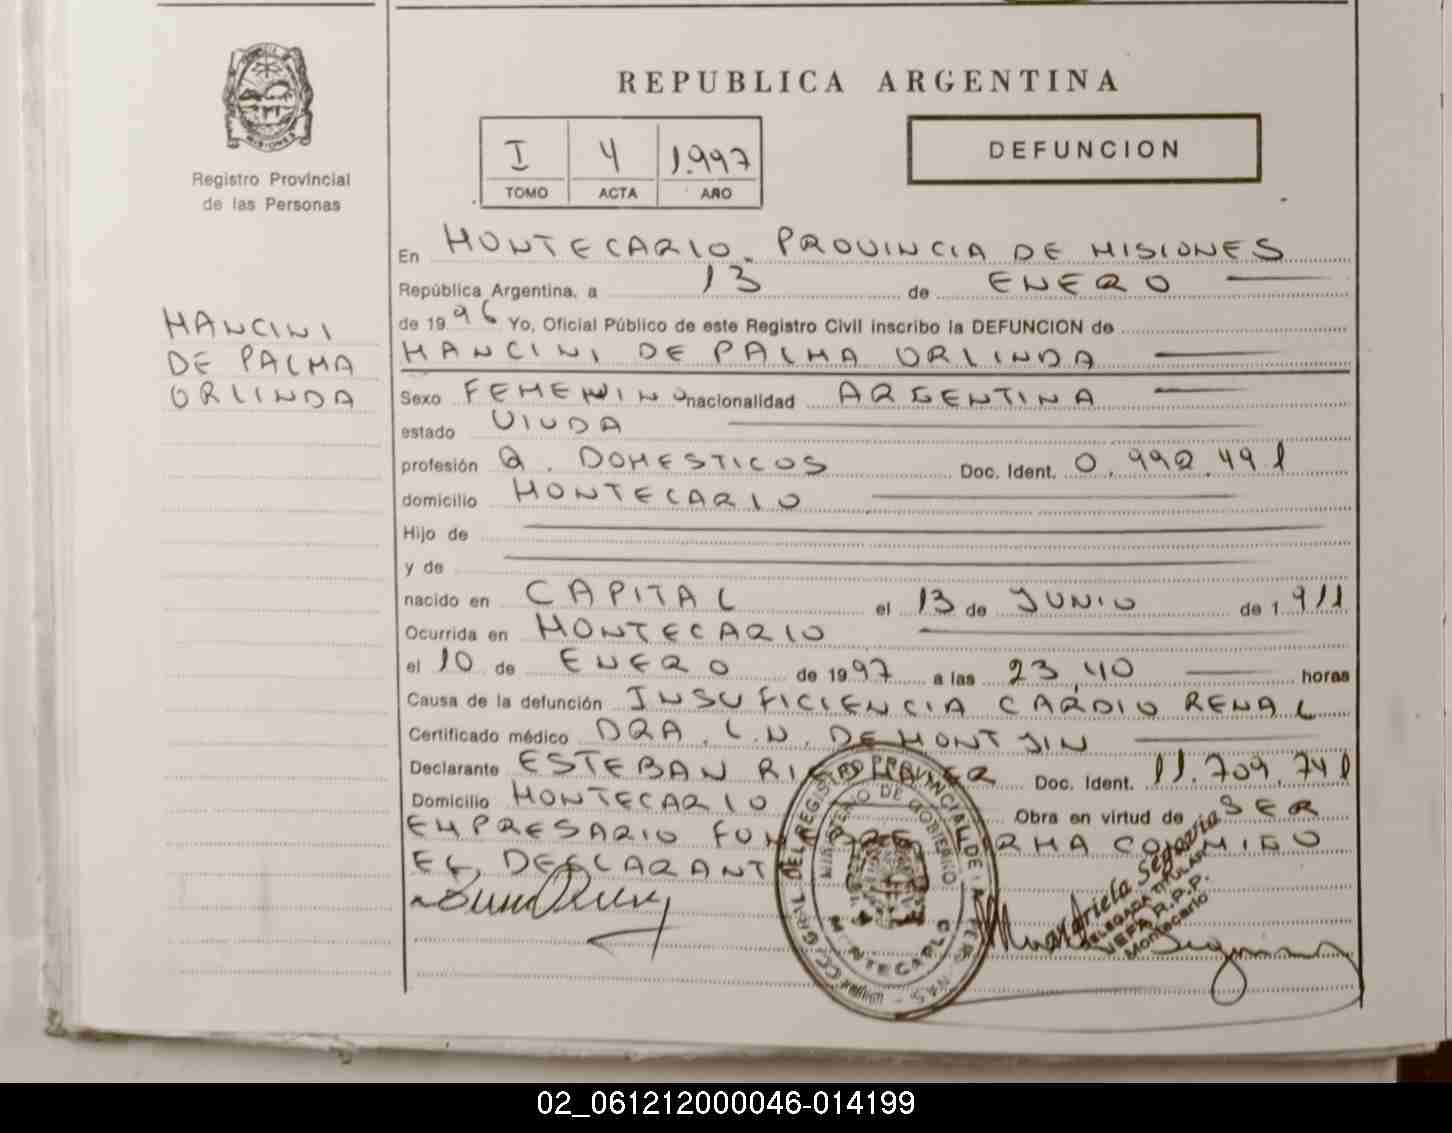 REPUBLICA ARGENTINA
MISIONES
Registro Provincial
de las Personas
I 4 1.997
TOMO ACTA AÑO
DEFUNCION
En MONTECARLO. PROVINCIA DE MISIONES
República Argentina, a 13 de ENERO
de 1996 Yo, Oficial Público de este Registro Civil inscribo la DEFUNCION de
MANCINI DE PALMA ORLINDA
MANCINI
DE PALMA
ORLINDA
Sexo FEMENINO nacionalidad ARGENTINA
estado VIUDA
profesión Q. DOMESTICOS Doc. Ident. 0.992.491
domicilio MONTECARLO
Hijo de
y de
nacido en CAPITAL el 13 de JUNIO de 1.911
Ocurrida en MONTECARLO
el 10 de ENERO de 1997 a las 23,40 horas
Causa de la defunción INSUFICIENCIA CARDIO RENAL
Certificado médico DRA. L.N. DE MONTJIN
Declarante ESTEBAN Doc. Ident. 11.709.741
Domicilio MONTECARLO Obra en virtud de SER
EMPRESARIO FUNEBRE FIRMA CONMIGO
EL DECLARANTE
REGISTRO PROVINCIAL DE
MINISTERIO DE GOBIERNO
MONTECARLO
Segovia
DELEGADA TITULAR
R.P.P.
Montecarlo
02_061212000046-014199